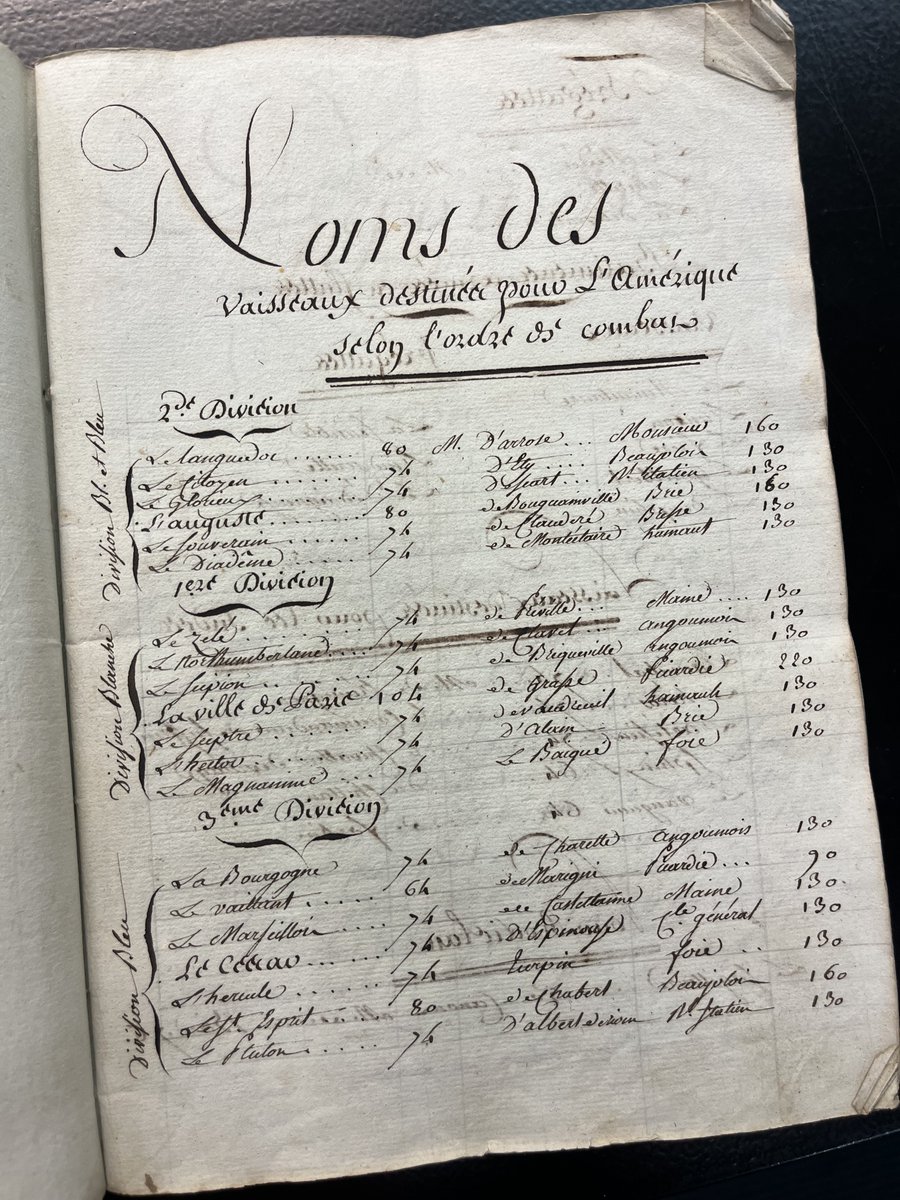 Noms des
Vaisseaux destinée pour L'Amérique
selon l'ordre de combat
2de Division
Division Bl. et Bleu
Le languedoc ...... 80 M. D'arrose ... Monsieur 160
Le Citoyen ...... 74 D'Ety ... Beaujoloix 130
Le Glorieux ...... 74 D'Escart Rl. italien 130
L'auguste ...... 80 de Bouguainville Brie 160
Le Souverain ...... 74 de Glanderé Bresse 130
Le Diadême ...... 74 de Monteclaire hainaut 130
1ere Division
Division Blanche
Le Zelé ...... 74 de Preville ... Maine .... 130
Le Northumberland ... 74 de Clavel ... angoumois 130
Le Scipion ...... 74 de Briqueville Engoumois 130
La Ville de Paris 104 de Grasse Picardie 220
Le Sceptre ...... 74 de Vaudreuil hainault 130
L'hector ...... 74 D'Alain Brie 130
Le Magnanime ... 74 Le Baigue foix 130
3eme Division
Division Bleu
La Bourgogne 74 de Charette angoumois 130
Le vaillant ..... 64 de Marigni Picardie ... 90
Le Marseillois 74 de Castellanne Maine 130
Le César ..... 74 D'Espinouse Cle général 130
L'hercule ...... 74 turpin foix .. 130
Le St Esprit ..... 80 de Chabert Beaujolois 160
Le Pluton ...... 74 D'albert de rion Rl italien 130